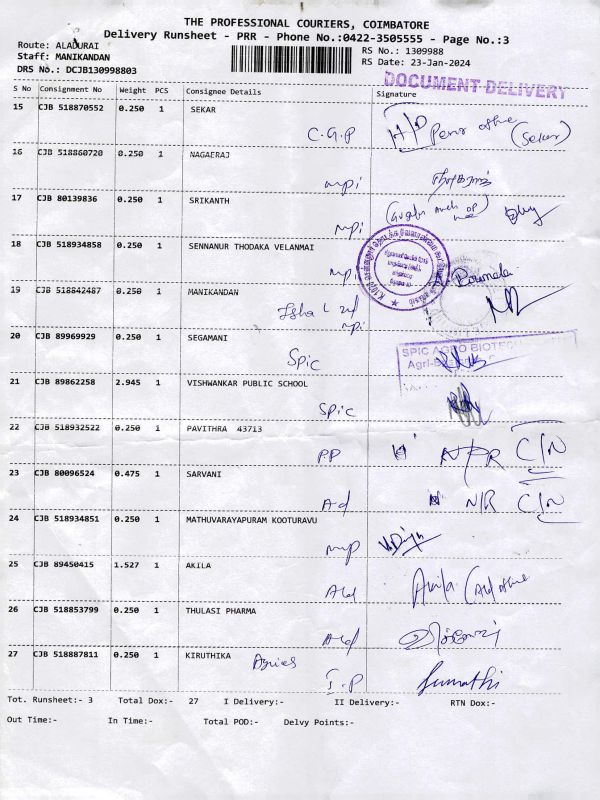 THE PROFESSIONAL COURIERS, COIMBATORE
Delivery Runsheet - PRR - Phone No.:0422-3505555 - Page No.:3
Route: ALADURAI RS No.: 1309988
Staff: MANIKANDAN RS Date: 23-Jan-2024
DRS No.: DCJB130998803
DOCUMENT DELIVERY
S No Consignment No Weight PCS Consignee Details Signature
15 CJB 518870552 0.250 1 SEKAR
C.G.P (Sekar)
16 CJB 518860720 0.250 1 NAGAERAJ
mpi நாகராஜ்
17 CJB 80139836 0.250 1 SRIKANTH
mpi
18 CJB 518934858 0.250 1 SENNANUR THODAKA VELANMAI
19 CJB 518842487 0.250 1 MANIKANDAN
Isha
mpi
20 CJB 89969929 0.250 1 SEGAMANI
SPIC AGRO BIOTEC
Spic
21 CJB 89862258 2.945 1 VISHWANKAR PUBLIC SCHOOL
Spic
22 CJB 518932522 0.250 1 PAVITHRA 43713
P.P C/N
23 CJB 80096524 0.475 1 SARVANI
Ad N/R C/N
24 CJB 518934851 0.250 1 MATHUVARAYAPURAM KOOTURAVU
25 CJB 89450415 1.527 1 AKILA
Ald Akila
26 CJB 518853799 0.250 1 THULASI PHARMA
Ald
27 CJB 518887811 0.250 1 KIRUTHIKA Agries
I.P Sumathi
Tot. Runsheet:- 3 Total Dox:- 27 I Delivery:- II Delivery:- RTN Dox:-
Out Time:- In Time:- Total POD:- Delvy Points:-